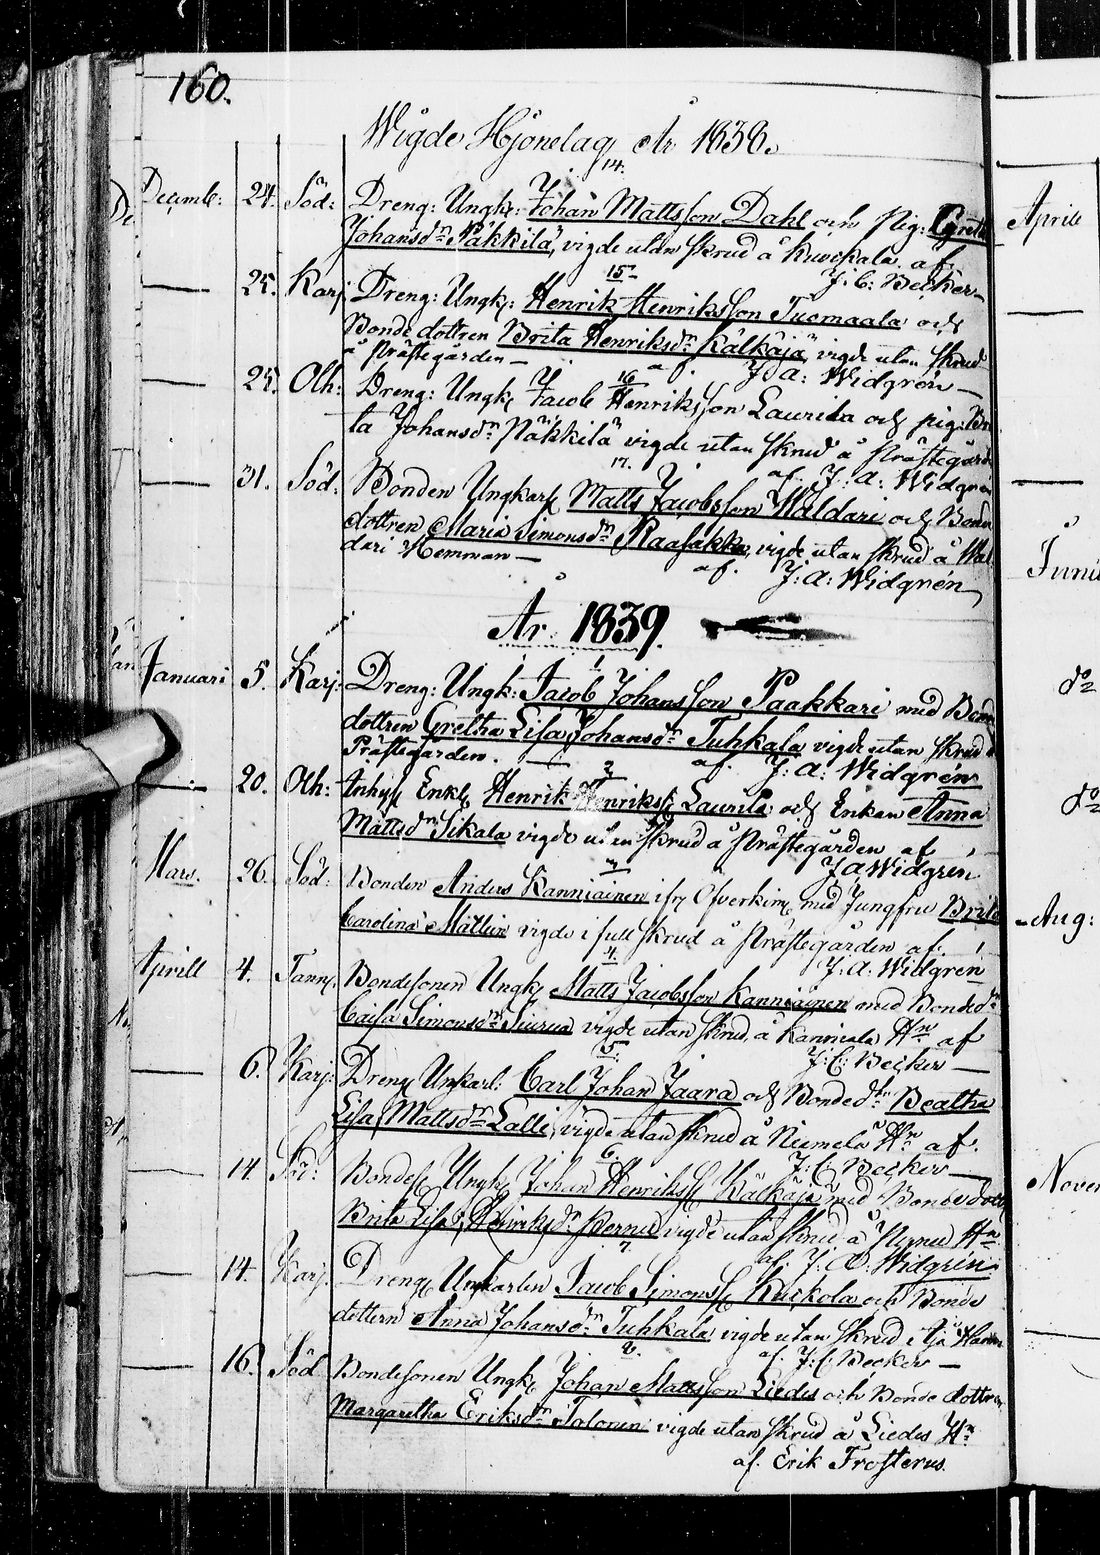 160.
Wigde Hjonelag År 1838.
14.
Decemb: 24. Söd: Dreng: Ungk: Johan Mattsson Dahl och Pig: Greta
Johansdr Päkkilä, vigde utan skrud å Kuivikala af
J: C: Becker
15
25. Karj: Dreng: Ungk: Henrik Henriksson Tuomaala och
Bonde dottren Brita Henriksdr Kälkäjä, vigde utan skrud
å Prästegården af J: A: Widgrén
16
25. Olh: Dreng: Ungk: Jacob Henriksson Laurila och pig: Bri
ta Johansdr Päkkilä vigde utan skrud å Prästegård
af J: A: Widgrén
17.
31. Söd: Bonden Ungkarl Matts Jacobsson Waldari och Bonde
dottren Maria Simonsdr Raasakka, vigde utan skrud å Wal
dari Hemman
af. J: A: Widgrén
År 1839.
1
Januari 5. Karj: Dreng: Ungk: Jacob Johansson Paakkari med Bonde
dottren Gretha Lisa Johansdr Tuhkala vigde utan skrud å
Prästegården. af. J: A: Widgrén
2
20. Olh: Inhys Enkl Henrik Henrikss Laurila och Enkan Anna
Mattsdr Sikala vigde utan skrud å Prästegården af
J A Widgrén
3
Mars. 26. Söd: Bonden Anders Kanniainen ifr Öfverkim med Jungfru Brita
Carolina Mattlin vigde i full skrud å Prästegården af.
J. A. Widgrén
4.
Aprill 4. Tann. Bondesonen Ungk Matts Jacobsson Kanniainen med Bondedr
Caisa Simonsdr Siurua vigde utan skrud, å Kanniala Hn af
J: C: Becker
5.
6. Karj: Dreng Unkarl: Carl Johan Jaara och Bondedtr Beatha
Lisa Mattsdr Lalli, vigde utan skrud å Niemelä Hn af.
J. C Becker
6.
14. Söd: Bondes Ungk Johan Henrikss Kälkäjä med Bondedott
Brita Lisa Henriksdr Pernu vigde utan skrud å Pernu Hn
af. J. A. Widgrén
7.
14. Karj. Dreng Unkarlen Jacob Simonss Kuckola och Bonde
dottern Anna Johansdr Tuhkala vigde utan skrud i Ija Hamn
af. J. C. Becker
8.
16. Söd Bondesonen Ungk Johan Mattsson Liedes och Bonde dottren
Margaretha Eriksdr Tolonen vigde utan skrud å Liedes Hn
af. Erik Frosterus.
Aprill
Junii
do
do
Aug:
Novem